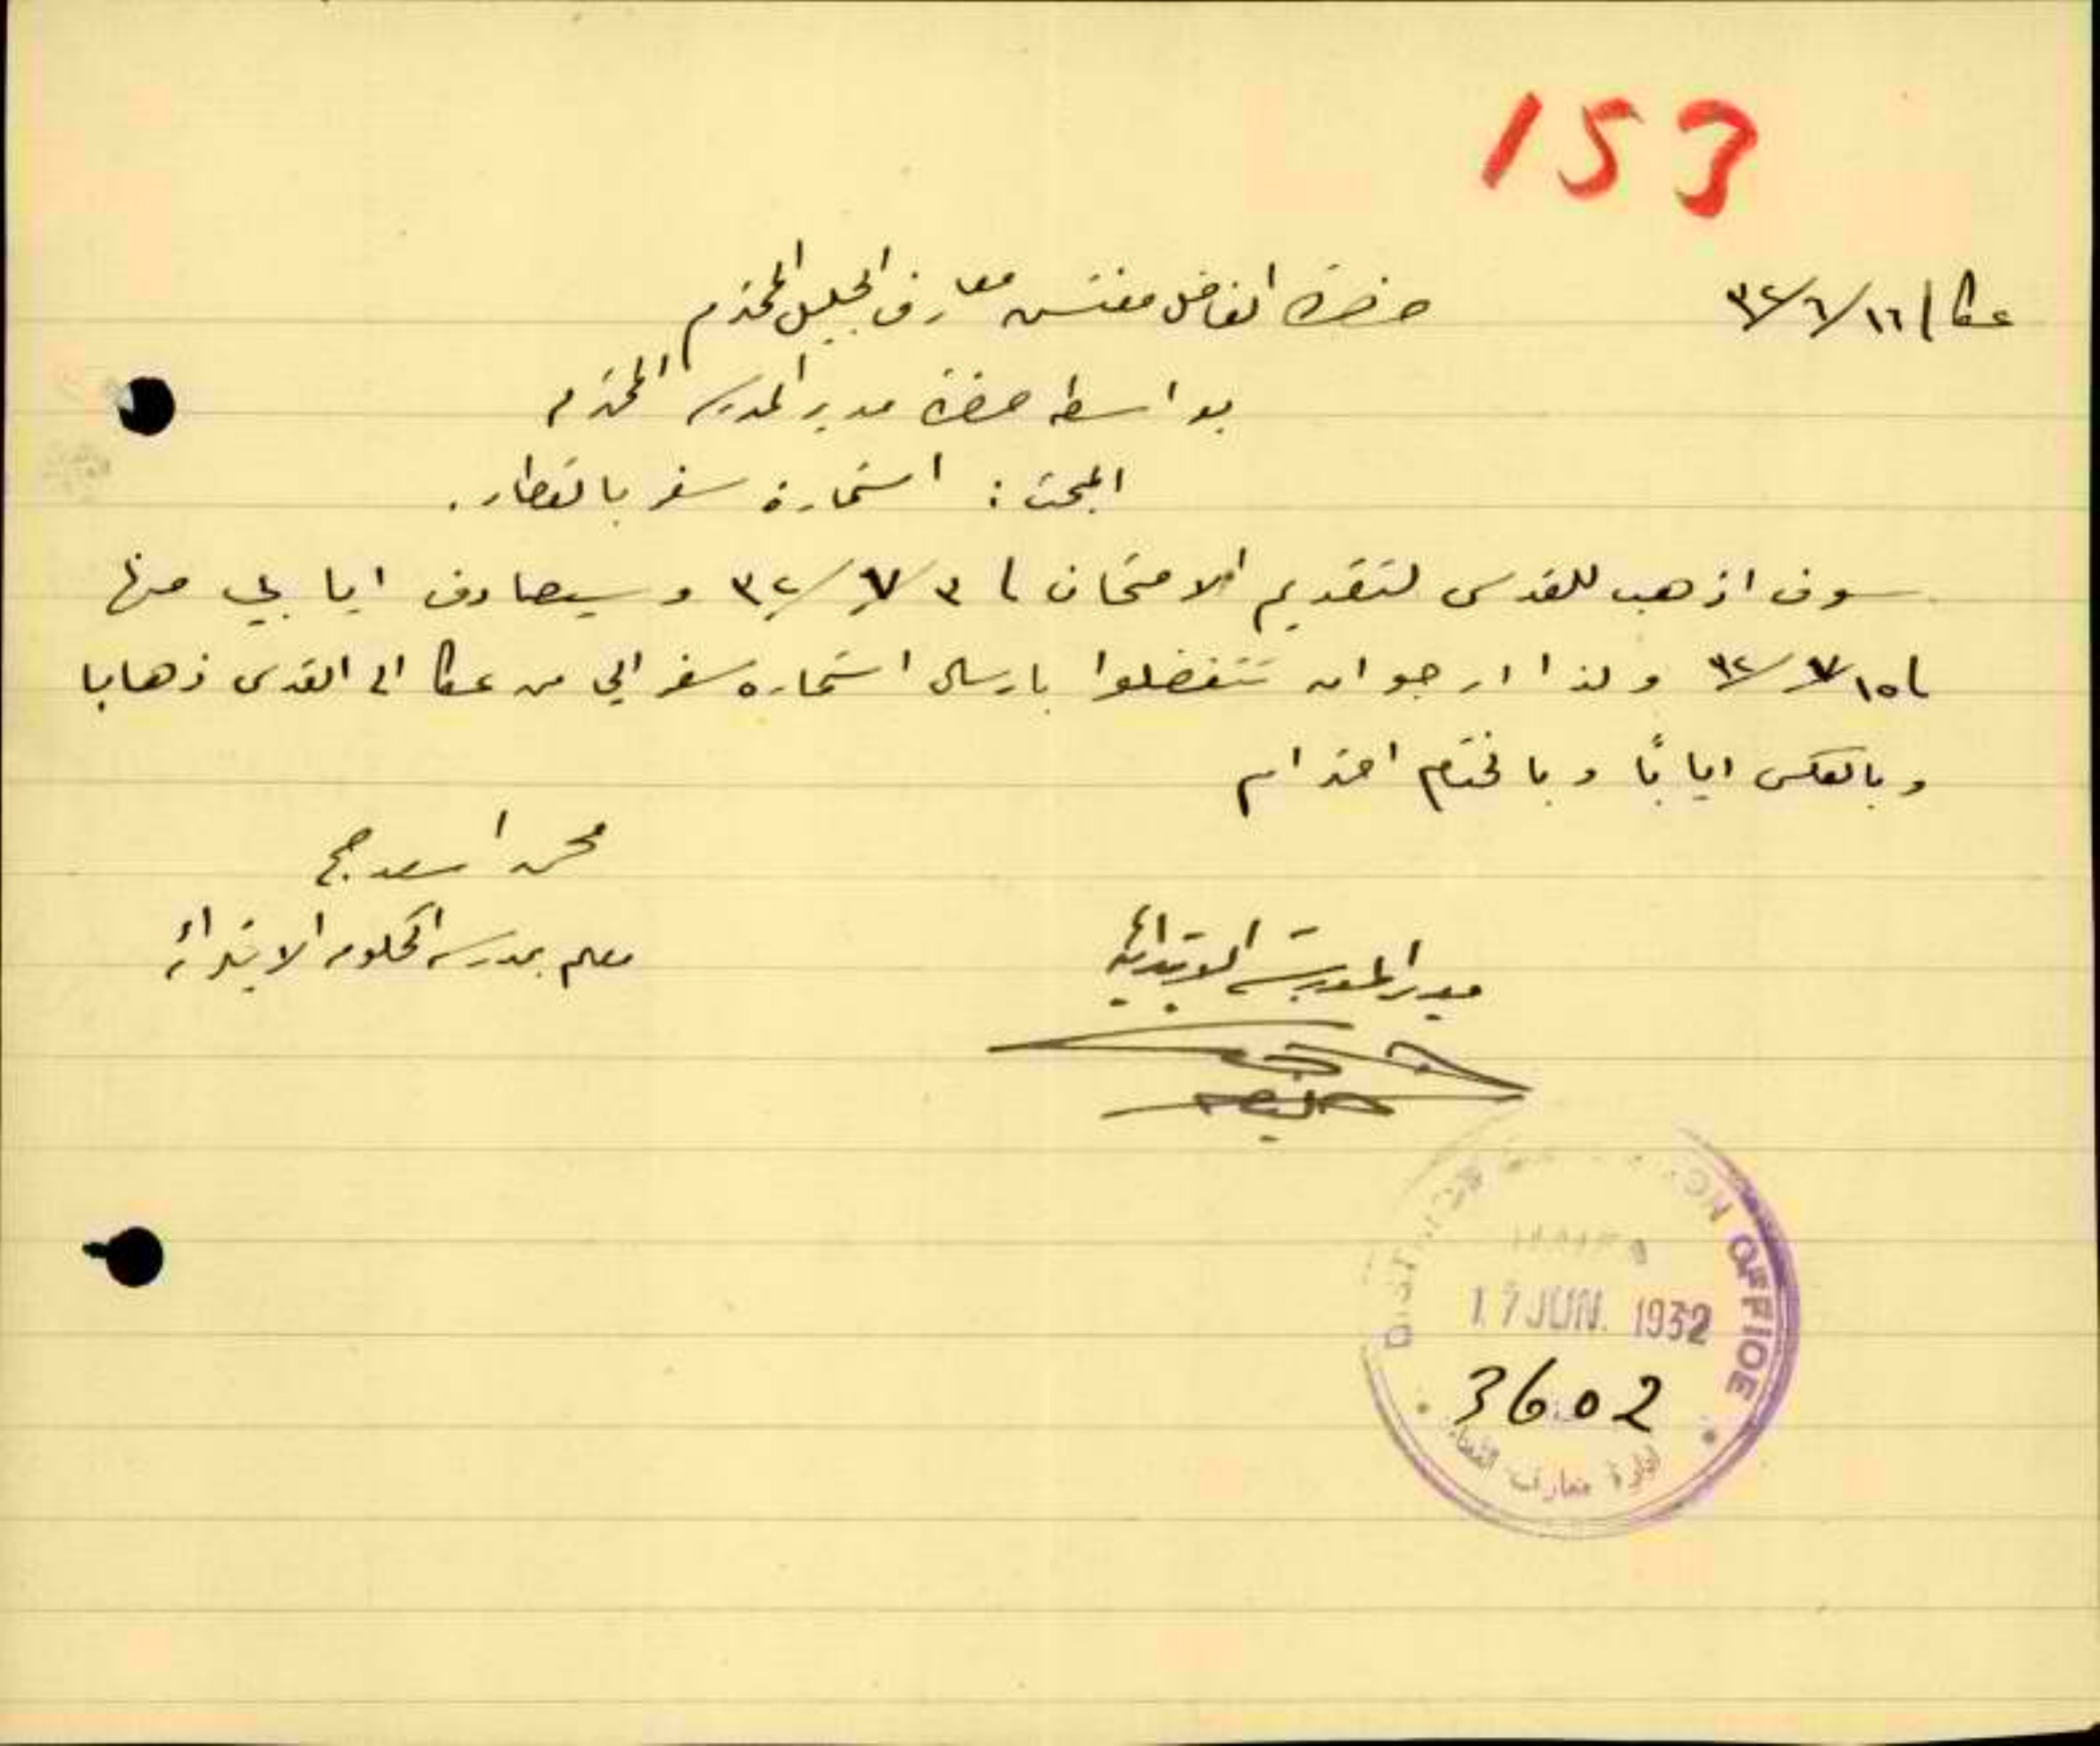 153
عكا ١٦/٦/٣٢
حضرة الفاضل مفتش معارف الجليل المحترم
بواسطة حضرة مدير المدرسة المحترم
المبحث : استمارة سفر بالقطار .
سوف اذهب للقدس لتقديم الامتحان في ٣/٧/٣٢ وسيصادف ايابي منها
في ١٥/٧/٣٢ ولذا ارجو ان تتفضلوا بارسال استمارة سفر الي من عكا الى القدس ذهابا
وبالعكس ايابًا وبالختام احترام
محسن اسعد
معلم بمدرسة الحكومة الابتدائية
مدير المدرسة الابتدائية
DISTRICT EDUCATION OFFICE
HAIFA
17 JUN. 1932
3602
ادارة معارف القضاء